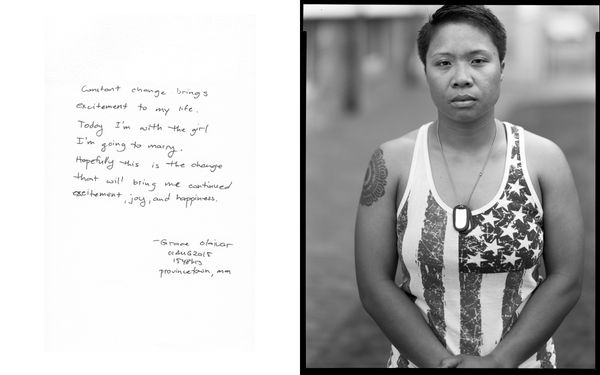 Constant change brings
excitement to my life.
Today I'm with the girl
I'm going to marry.
Hopefully this is the change
that will bring me continued
excitement, joy, and happiness.
-Grace
provincetown,